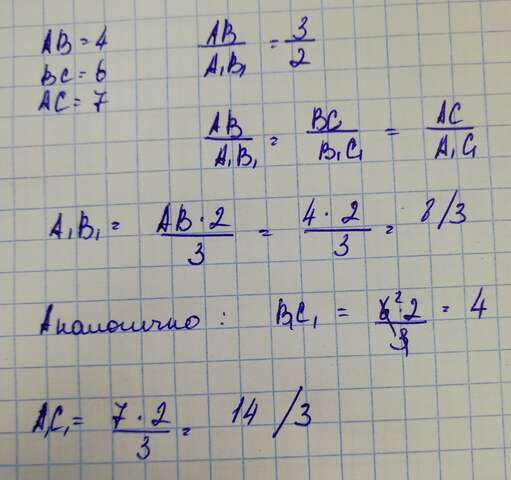 AB = 4
BC = 6
AC = 7
AB / A₁B₁ = 3 / 2
AB / A₁B₁ = BC / B₁C₁ = AC / A₁C₁
A₁B₁ = AB · 2 / 3 = 4 · 2 / 3 = 8/3
Аналогично : B₁C₁ = 6² · 2 / 3 = 4
A₁C₁ = 7 · 2 / 3 = 14 / 3